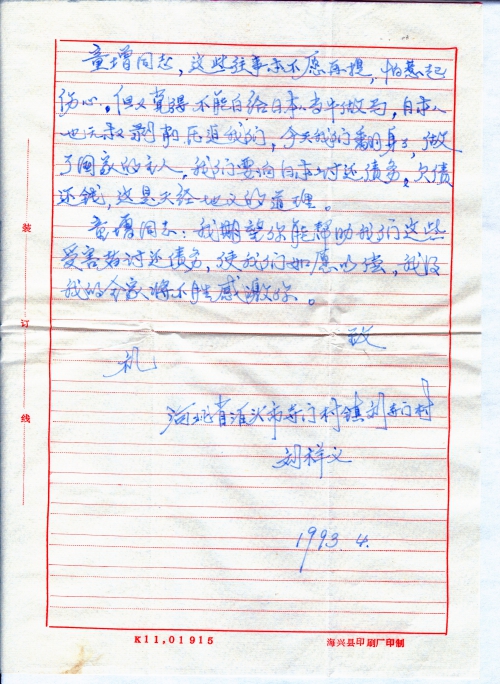 童增同志，这些往事亦不愿再提，怕惹起
伤心。但又觉得不能白给日本当牛做马，日本人
地 剥削压迫我们，今天我们翻身了，做
了国家的主人，我们要向日本讨还债务。欠债
还钱，这是天经地义的道理。
童增同志：我期望你能帮助我们这些
受害者讨还债务，使我们如愿以偿，我及
我的全家将不胜感激你。
致
礼
河北省泊头市寺门村镇刘寺门村
刘祥义
1993.4.
装
订
线
K11.01915
海兴县印刷厂印制